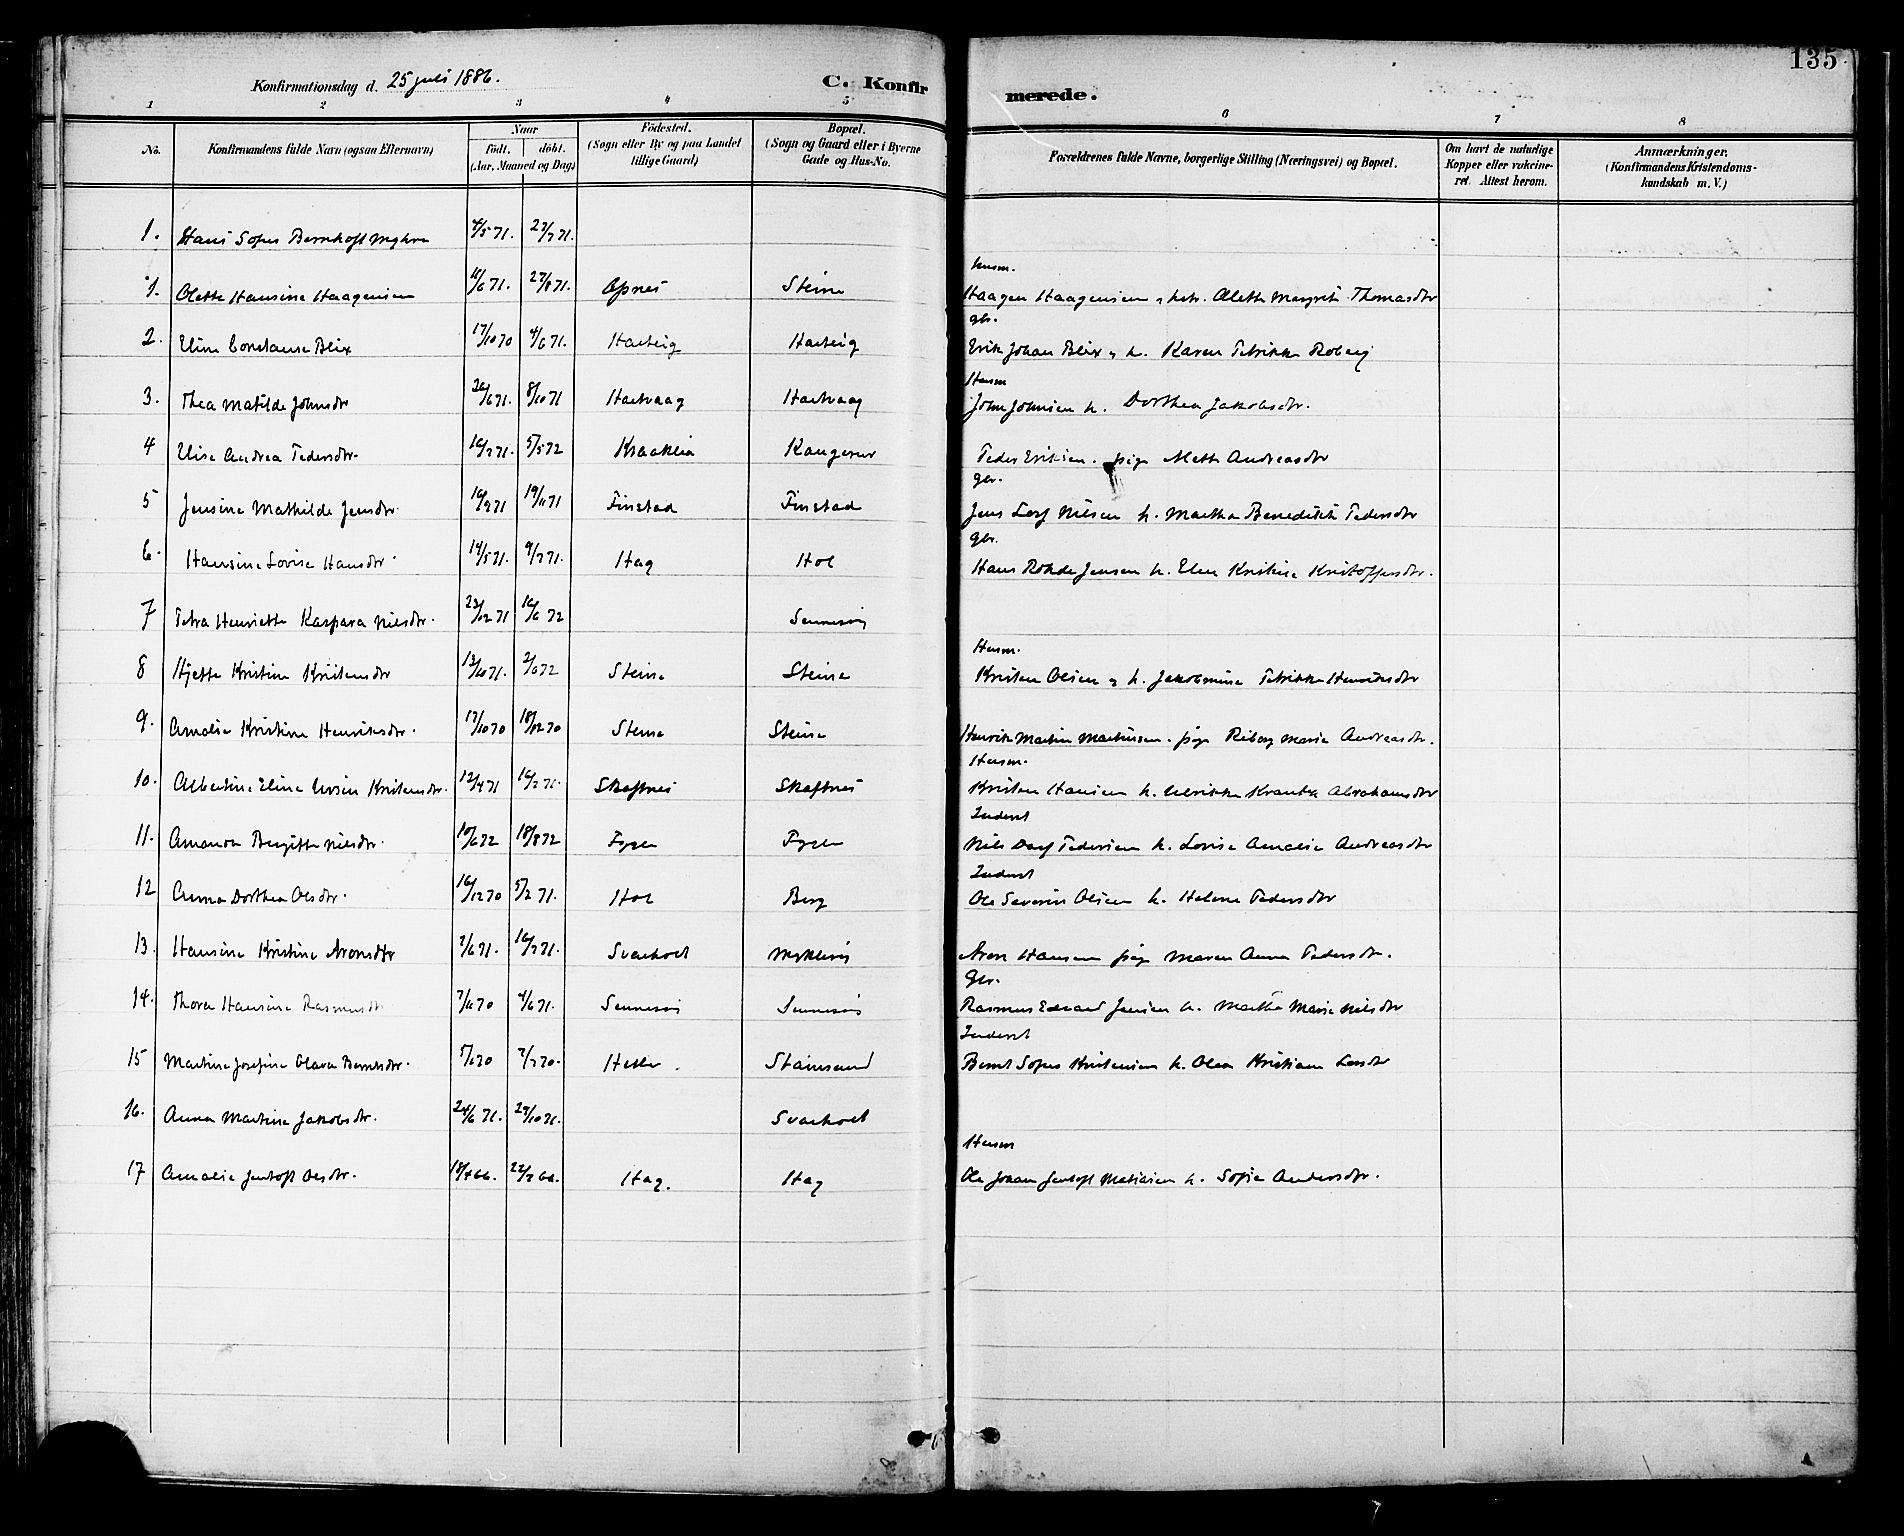 135
Konfirmationsdag d. 25 juli 1886.
C. Konfirmerede.
1 2 3 4 5 6 7 8
No. Konfirmandens fulde Navn (ogsaa Efternavn) Naar födt. döbt. (Aar, Maaned og Dag) Födested. (Sogn eller By og paa Landet tillige Gaard) Bopæl. (Sogn og Gaard eller i Byerne Gade og Hus-No. Forældrenes fulde Navne, borgerlige Stilling (Næringsvei) og Bopæl. Om havt de naturlige Kopper eller vakcineret. Attest herom. Anmærkninger, (Konfirmandens Kristendomskundskab m. V.)
1. Hans Sofus Bernhoft 4/5 71. 23/7 71.
Husm.
1. Olette Hansine Haagensen 27/8 71. Opnes Steine Haagen Haagensen Alette Margrete Thomasdtr
gbr.
2. Eline Constanse Blix 17/10 70 4/6 71. Erik Johan Blix & h. Karen Petrikke Roberg
Husm
3. Thea Matilde Johnsdr 26/6 71. 8/10 71 Hartvaag Hartvaag John Johnsen h. Dorthea Jakobsdr.
4 Elise Andrea Pedersdr. 16/7 71. 5/5 72 Kraaklia Peder Eriksen. pige Mette Andreasdtr
gbr.
5 Jensine Mathilde Jensdr. 16/9 71 19/11 71 Finstad Finstad Jens Nilsen h. Martha Benedikte Pedersdtr
gbr.
6. Hansine Lovise Hansdr. 14/5 71. 9/7 71. Hag Hol Hans Rohde Jensen h. Elen Kristine Kristoffersdtr.
7 Petra Henriette Kaspara Nilsdtr. 23/12 71 16/6 72 Sennesvi
Husm.
8 Hjette Kristine Kristensdr 13/10 71. 2/6 72 Steine Steine Kristen Olsen & h. Jakobmine Petrikke Henriksdtr
9. Amalie Kristine Henriksdr. 17/10 70 18/12 70 Steine Steine Henrik Martin Martinsen. pige Riborg Marie Andreasdtr.
Husm.
10. Albertine Eline Kristensdr. 12/4 71 16/7 71. Skaftnes Skaftnes Kristen Hansen h. Ulrikke Krantz Abrahamsdtr
Inderst
11. Amanda Birgitte Nilsdtr. 10/6 72 18/8 72 Fygle Fygle Nils Pedersen h. Lovise Amalie Andreasdtr
Inderst
12 Anna Dorthea Olsdtr. 16/12 70 5/2 71. Hol Berg Ole Severin Olsen h. Helene Pedersdtr
13. Hansine Kristine Aronsdtr 2/6 71. 16/7 71. Svarholt Myklevi Aron Hansen pige Maren Anna Pedersdtr.
Gbr.
14. Thora Hansine Rasmusdr 4/6 71. Sennesvi Sennesvi Rasmus Edvard Jensen h. Martha Marie Nilsdtr
Inderst
15 Martine Josefine Olava Berntsdr. Stamsund Bernt Sofus Kristensen h. Olea Kristiane Larsdtr
16. Anna Martine Jakobsdr. 24/6 71. 29/10 71. Svarholt
Husm
17 Amalie Jentoft Olsdtr. 18/4 66. 22/7 66. Hag. Hag Ole Johan Jentoft Matisen h. Sofie Andersdtr.